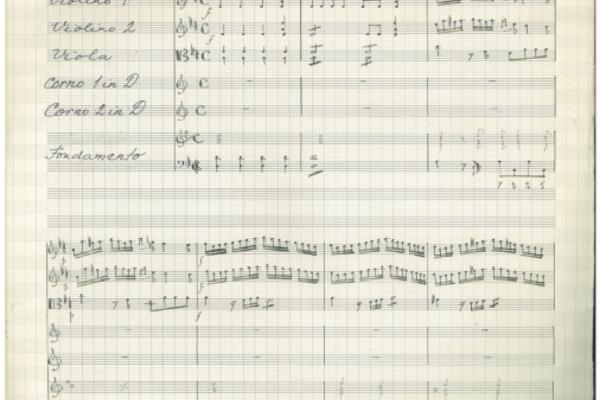 Violino 1
Violino 2
Viola
Corno 1 in D
Corno 2 in D
Fondamento
7 5 2 5